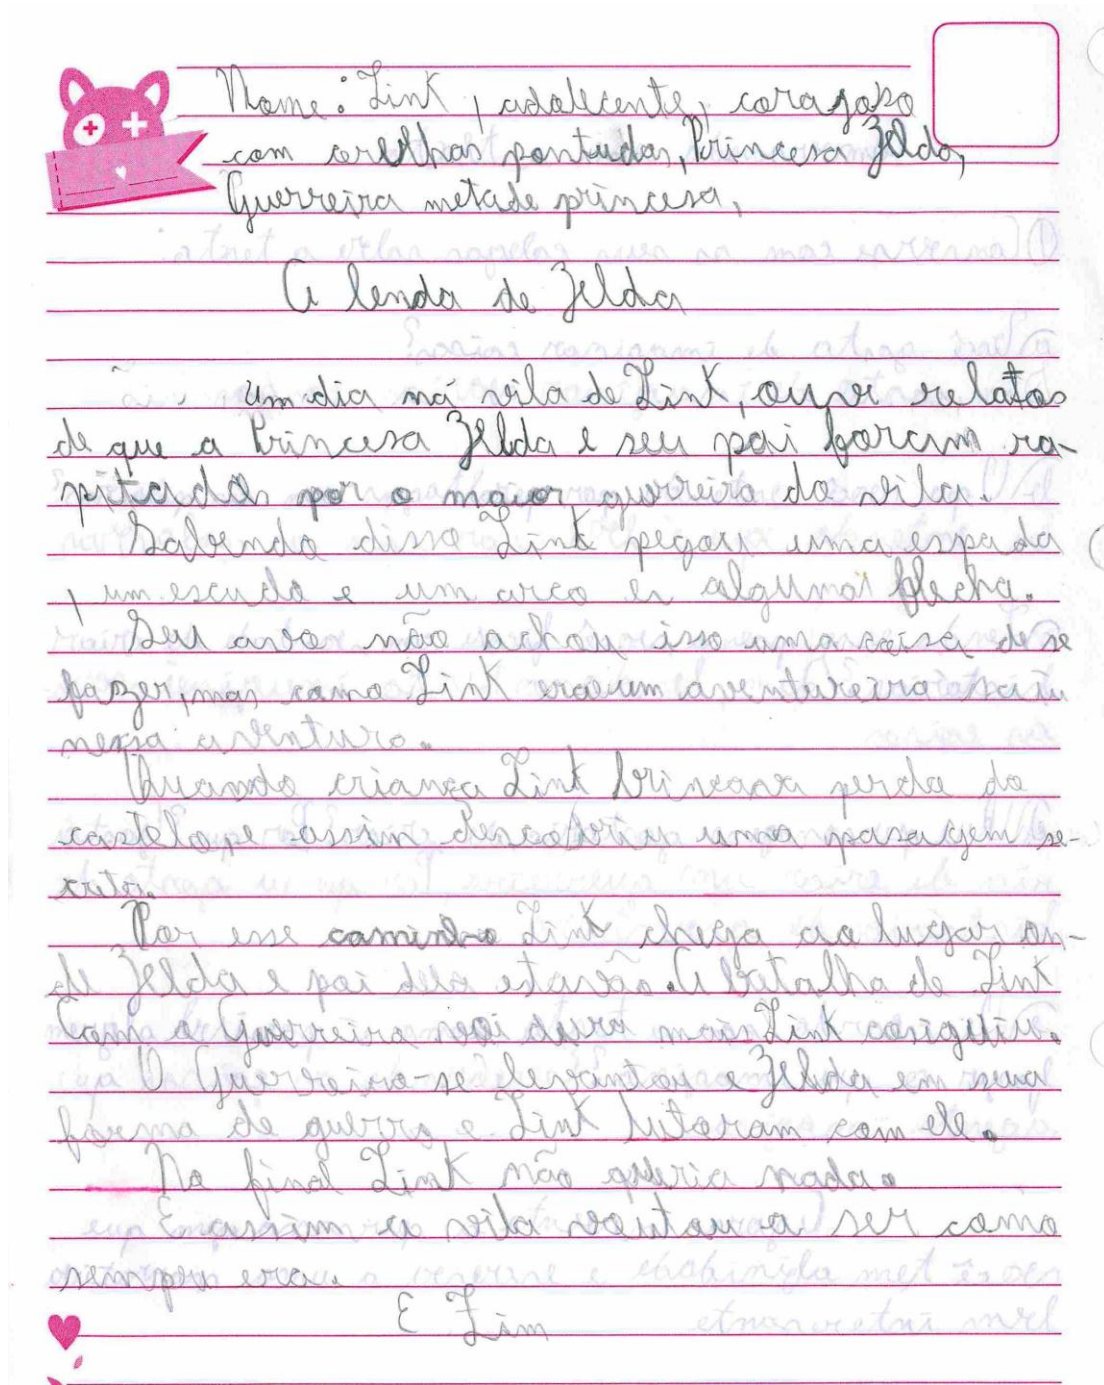 Nome: Link, adolecente, corajoso
com orelhas pontudas, Princesa Zelda,
Guerreira metade princesa,
A lenda de Zelda
Um dia ná vila de Link, ouve relatos
de que a Princesa Zelda e seu pai foram ra-
pitados por o maior guerreiro da vila.
Sabendo disso Link pegou uma espada
, um escudo e um arco e alguma flecha.
Seu avo não achou isso uma coisa de se
fazer, mas como Link era um aventureiro saiu
nessa aventura.
Quando criança Link brincava perda do
castelo, e assim descobriu uma pasagem se-
creta.
Por esse caminho Link chega ao lugar on-
de Zelda e pai dela estavão. A batalha de Link
Com o Guerreiro foi dura mais Link cosiguiu.
O Guerreiro-se levantou e Zelda em sua
forma de guerra e Link lutaram com ele.
No final Link não queria nada.
E assim a vila voutou a ser como
sempre era.
E Fim